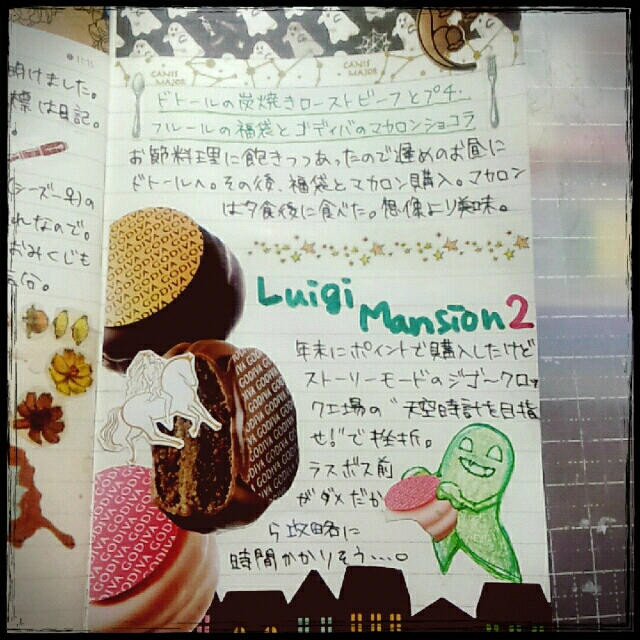 11:15
明けました。
標は日記。
(シーズー犬)の
れなので。
おみくじも
CANIS MAJOR
CANIS MAJOR
ドトールの炭焼きローストビーフとプチ
フルールの福袋とゴディバのマカロンショコラ
お節料理に飽きつつあったので遅めのお昼に
ドトールへ。その後、福袋とマカロン購入。マカロン
は夕食後に食べた。想像より美味。
Luigi
Mansion 2
年末にポイントで購入したけど
ストーリーモードのジゴ〜クロッ
ク工場の"天空時計を目指
せ!"で挫折。
ラスボス前
がダメだか
ら攻略に
時間かかりそう....。
GODIVA GODIVA GODIVA
GODIVA GODIVA GODIVA
GODIVA GODIVA GODIVA